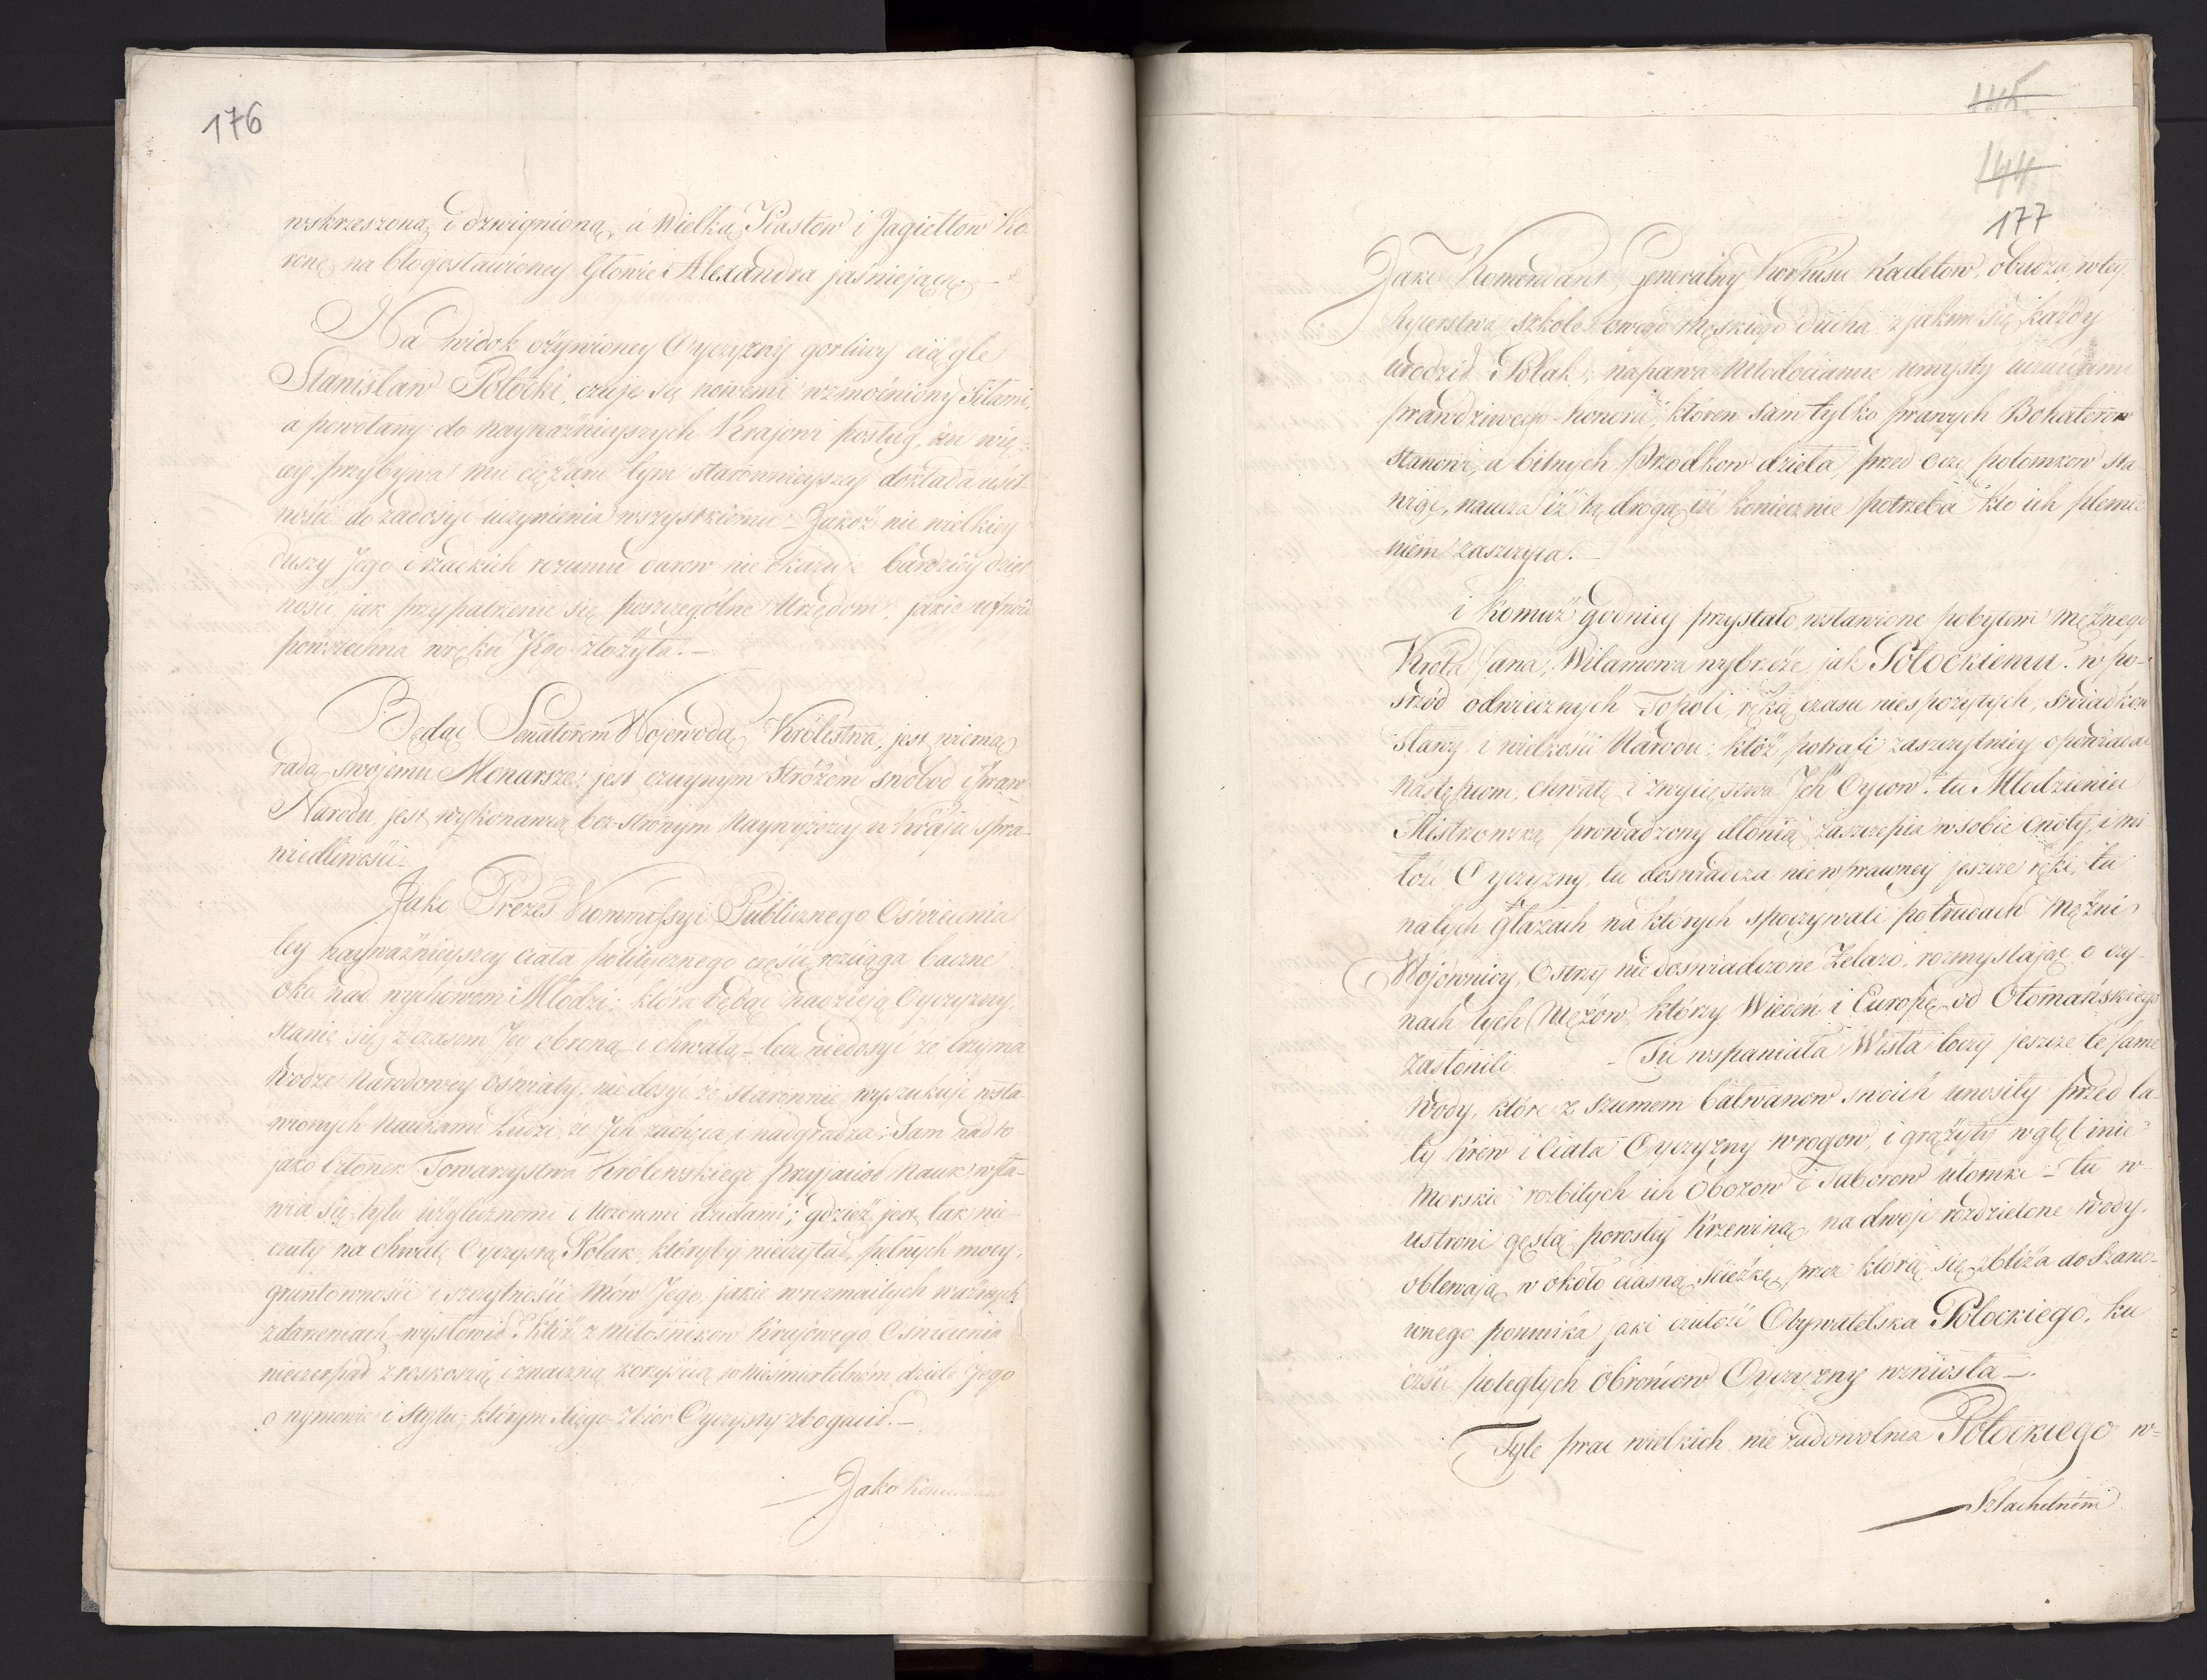 176
wskrzeszoną i dzwignioną, a Wielką Piastow i Jagiellow Ko-
ronę na błogosławioney Głowie Alexandra jaśniejącą. —
Na widok ożywioney Oyczyzny gorliwy ciągle
Stanisław Potocki, czuje się nowemi wzmocniony Siłami,
a powołany do naywaźnieyszych Krajowi posług, im wię-
cey przybywa mu ciężaru tym staronnieyszey dokłada usil-
ności do zadosyć uczynienia wszystkiemu — Jakoż nic wielkiey
duszy Jego i rzadkich rozumu darow nie okazuje bardziey dziel
ności jak przypatrzenie się poszczegolne Urzędom, jakie ufność
powszechna w ręku Jego złożyła. —
Będąc Senatorem Wojewodą Królestwa, jest wierną
radą swojemu Monarsze; jest czuynym Stróżem swobod i praw
Narodu jest wykonawcą bez-stronnym Naywyższey w Kraju spra-
wiedliwości.
Jako Prezes Kommissyi Publicznego Oświecenia
tey naywaźnieyszey ciała politycznego części, rozciąga baczne
oko nad wychowem Młodzi; która będąc nadzieją Oyczyzny,
stanie się z czasem Jey obroną i chwałą — lecz niedosyć ze trzyma
wodze Narodowey Oświaty, nie dosyć że staronnie wyszukuje wsła-
wionych Naukami Ludzi, że Ich zachęca i nadgradza; Sam nadto
jako Członek Towarzystwa Królewskiego Przyjaciół Nauk wsła-
wia się tylu użytecznemi i Uczonemi dziełami; gdzież jest tak nie-
czuły na chwałę Oyczystą Polak, któryby nieczytał, pełnych mocy,
gruntowności i szczytności Mów Jego, jakie w rozmaitych ważnych
zdarzeniach wysłowił? któż z miłośnikow Krajowego Oświecenia
nieczerpał z roskoszą i znaczną korzyścią w Nieśmiertelném dziele Jego
o wymowie i Stylu, którym Xięgo-zbior Oyczysty zbogacił. —
Jako Komendant
145
144
177
Jako Komendant Generalny Korpusu Kadetow, obudza w tey
Rycerstwa szkole owego męskiego ducha z jakim się każdy
urodził Polak; napawa młodociane umysły uczuciami
prawdziwego honoru, któren sam tylko prawych Bohaterow
stanowi, a bitnych Przodkow dzieła, przed oczy potomkow sta-
wiąc, naucza iż tą drogą iść koniecznie potrzeba kto ich plemie-
niem zaszczyca. —
i Komuż godniey przystało, wsławione pobytem mężnego
Króla Jana, Wilanowa wybrzeże jak Potockiemu? w po-
sród odwiecznych Topoli, ręką czasu niespożytych, świadkow
Sławy i wielkości Narodu; któż potrafi zaszczytniey opowiadać
następcom, chwałę i zwycięstwa Ich Oycow? tu Młodzieniec
Mistrzowską prowadzony dłonią zaszczepia w sobie cnoty, i mi
łość Oyczyzny, tu doświadcza niewprawney jeszcze ręki, tu
na tych Głazach na ktorych spoczywali po trudach Mężni
Wojownicy, Ostrzy nie doświadczone Żelazo, rozmyslając o czy-
nach tych Mężów, którzy Wiedeń i Europę od Otomańskiego
zasłonili. — Tu wspaniała Wisła toczy jeszcze te same
wody, które z szumem bałwanow swoich unosiły przed la-
ty Krew i Ciała Oyczyzny wrogow, i grążyły w głębinie
Morskie rozbitych ich Obozow i Taborow ułomki — tu w
ustroni gęstą porosły Krzewiną, na dwoje rozdzielone wody,
oblewają w około ciasną Scieżkę, przez którą się zbliża do Szano-
wnego pomnika jaki czułość Obywatelska Potockiego, ku
czci poległych Obrońcow Oyczyzny wzniosła —.
Tyle prac wielkich nie zadowolnia Potockiego w=
Szlachetném